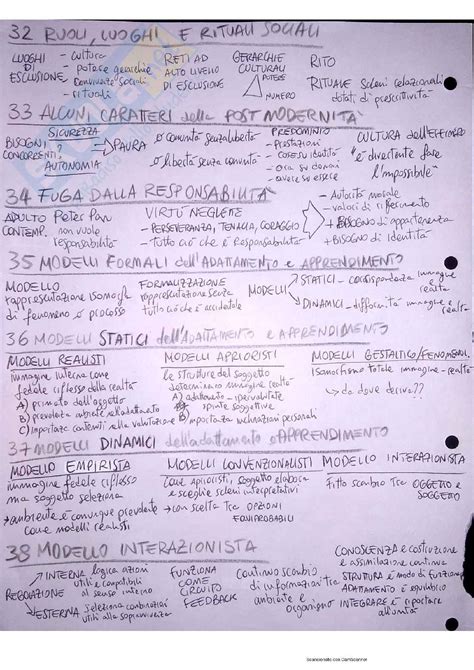 32 RUOLI, LUOGHI E RITUALI SOCIALI
LUOGHI DI ESCLUSIONE
- cultura
- potere gerarchie
- convivenze sociali
- rituali
RETI AD ALTO LIVELLO DI ESCLUSIONE
GERARCHIE CULTURALI
POTERE
NUMERO
RITO
RITUALE schemi relazionali dotati di prescrittività
33 ALCUNI CARATTERI della POSTMODERNITÀ
BISOGNI CONCORRENTI
SICUREZZA
AUTONOMIA
PAURA
o comunità senza libertà
o libertà senza comunità
PREDOMINIO
- Prestazioni
- Cose su identità
- ora su domani
- avere su essere
CULTURA dell'EFFIMERO
è divertente fare l'impossibile
34 FUGA DALLA RESPONSABILITÀ
ADULTO CONTEMP.
Peter Pan
non vuole responsabilità
VIRTÙ NEGLETTE
- PERSEVERANZA, TENACIA, CORAGGIO
- Tutto ciò che è Responsabilità
- Autorità morale
- valori di riferimento
+ BISOGNO di appartenenza
+ BISOGNO di identità
35 MODELLI FORMALI dell'ADATTAMENTO e APPRENDIMENTO
MODELLO
rappresentazione isomorfa di fenomeno o processo
FORMALIZZAZIONE
rappresentazione senza tutto ciò che è accidentale
MODELLI
STATICI - corrispondenza immagine e realtà
DINAMICI - difformità immagine e realtà
36 MODELLI STATICI dell'ADATTAMENTO e APPRENDIMENTO
MODELLI REALISTI
immagine interna come fedele riflesso della realtà
A) primato dell'oggetto
B) prevalenza ambiente all'adattamento
C) importanza contenuti alla valutazione
MODELLI APRIORISTI
le strutture del soggetto determinano immagine realtà
A) adattamento - ipervalutate
spinte soggettive
B) importanza inclinazioni personali
MODELLI GESTALTICO/FENOMENI.
Isomorfismo totale immagine - realtà
da dove deriva??
37 MODELLI DINAMICI dell'adattamento e APPRENDIMENTO
MODELLO EMPIRISTA
immagine fedele riflesso ma soggetto seleziona
→ ambiente è comunque prevalente come modelli realisti
MODELLI CONVENZIONALISTI
Come aprioristi, soggetto elabora e sceglie schemi interpretativi
→ con scelta tra OPZIONI EQUIPROBABILI
MODELLO INTERAZIONISTA
Fitto scambio tra OGGETTO e SOGGETTO
38 MODELLO INTERAZIONISTA
REGOLAZIONE
INTERNA logica azioni utili e compatibili al senso interno
ESTERNA seleziona combinazioni utili alla sopravvivenza
FUNZIONA COME CIRCUITO FEEDBACK
Continuo scambio di informazioni tra ambiente e organismo
CONOSCENZA è costruzione e assimilazione continua
STRUTTURA è modo di funzionare
ADATTAMENTO è equilibrio
INTEGRARE è riportare all'unità
Scansionato con CamScanner